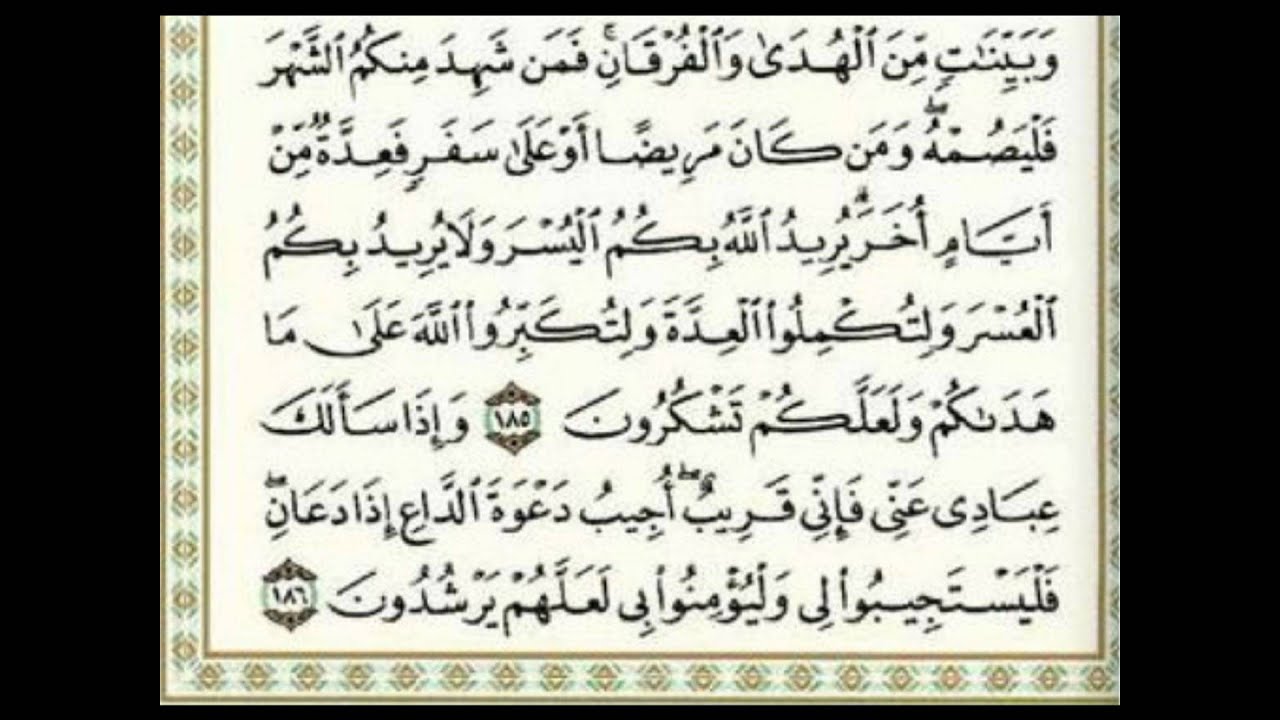 وَبَيِّنَٰتٖ مِّنَ ٱلۡهُدَىٰ وَٱلۡفُرۡقَانِۚ فَمَن شَهِدَ مِنكُمُ ٱلشَّهۡرَ
فَلۡيَصُمۡهُۖ وَمَن كَانَ مَرِيضًا أَوۡ عَلَىٰ سَفَرٖ فَعِدَّةٞ مِّنۡ
أَيَّامٍ أُخَرَۗ يُرِيدُ ٱللَّهُ بِكُمُ ٱلۡيُسۡرَ وَلَا يُرِيدُ بِكُمُ
ٱلۡعُسۡرَ وَلِتُكۡمِلُواْ ٱلۡعِدَّةَ وَلِتُكَبِّرُواْ ٱللَّهَ عَلَىٰ مَا
هَدَىٰكُمۡ وَلَعَلَّكُمۡ تَشۡكُرُونَ ١٨٥ وَإِذَا سَأَلَكَ
عِبَادِي عَنِّي فَإِنِّي قَرِيبٌۖ أُجِيبُ دَعۡوَةَ ٱلدَّاعِ إِذَا دَعَانِۖ
فَلۡيَسۡتَجِيبُواْ لِي وَلۡيُؤۡمِنُواْ بِي لَعَلَّهُمۡ يَرۡشُدُونَ ١٨٦